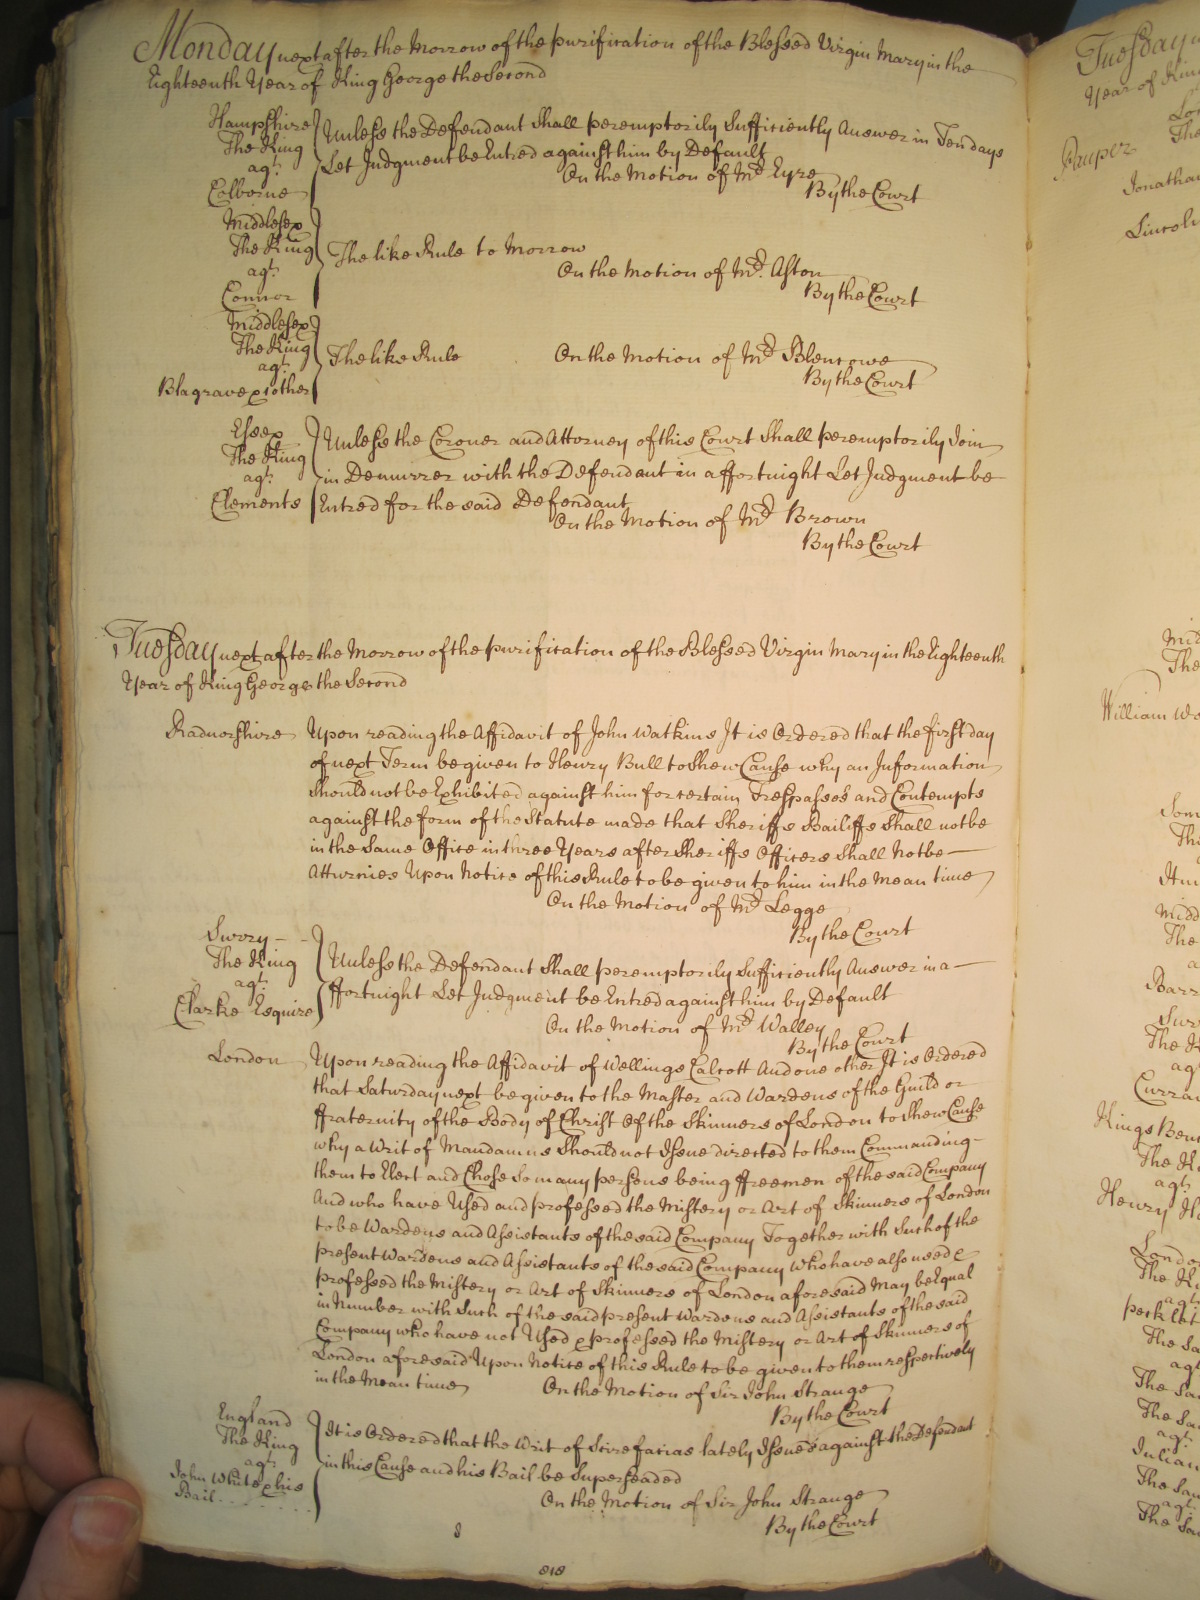 Monday next after the Morrow of the purification of the Blessed Virgin Mary in the
Eighteenth Year of King George the Second
Hampshire
The King
agt.
Colborne
Unless the Defendant Shall peremptorily Sufficiently Answer in Ten days
Let Judgment be Entred against him by Default
On the Motion of Mr. Eyre
By the Court
Middlesex
The King
agt.
Connor
The like Rule to Morrow
On the Motion of Mr. Aston
By the Court
Middlesex
The King
agt.
Blagrave & other
The like Rule
On the Motion of Mr. Blencowe
By the Court
Essex
The King
agt.
Clements
Unless the Coroner and Attorney of this Court Shall peremptorily Join
in Demurrer with the Defendant in a ffortnight Let Judgment be
Entred for the said Defendant
On the Motion of Mr. Brown
By the Court
Tuesday next after the Morrow of the purification of the Blessed Virgin Mary in the Eighteenth
Year of King George the Second
Radnorshire
Upon reading the Affidavit of John Watkins It is Ordered that the first day
of next Term be given to Henry Bull to Shew Cause why an Information
Should not be Exhibited against him for certain Trespasses and Contempts
against the form of the Statute made that Sheriffs Bailiffs Shall not be
in the Same Office in three Years after Sheriffs Officers Shall Not be
Atturnies Upon Notice of this Rule to be given to him in the mean time
On the Motion of Mr. Legge
By the Court
Surry
The King
agt.
Clarke Esquire
Unless the Defendant Shall peremptorily Sufficiently Answer in a
ffortnight Let Judgment be Entred against him by Default
On the Motion of Mr. Walley
By the Court
London
Upon reading the Affidavit of Wellings Calcott And one other It is Ordered
that Saturday next be given to the Master and Wardens of the Guild or
ffraternity of the Body of Christ Of the Skinners of London to Shew Cause
why a Writ of Mandamus Should not Issue directed to them Commanding
them to Elect and Chose So many persons being ffreemen of the said Company
And who have Used and professed the Mistery or Art of Skinners of London
to be Wardens and Assistants of the said Company Together with Such of the
present Wardens and Assistants of the said Company who have also used &
professed the Mistery or Art of Skinners of London aforesaid May be Equal
in Number with Such of the said present Wardens and Assistants of the said
Company who have not Used & professed the Mistery or Art of Skinners of
London aforesaid Upon Notice of this Rule to be given to them respectively
in the Mean time
On the Motion of Sir John Strange
By the Court
England
The King
agt.
John White & his
Bail
It is Ordered that the Writ of Scire facias lately Issued against the Defendant
in this Cause and his Bail be Superseaded
On the Motion of Sir John Strange
By the Court
8
818
Tuesday
Year of Kin
Lo
The
Pauper
Jonatha
Lincoln
Mid
The
William Wo
Som
Th
Midd
The
a
Barr
Surr
The K
agt
Curra
Kings Ben
The K
agt.
Henry H
London
The K
agt.
The Sa
agt
The Sa
The Sa
agt.
Julian
The Sa
agt.
The Sa